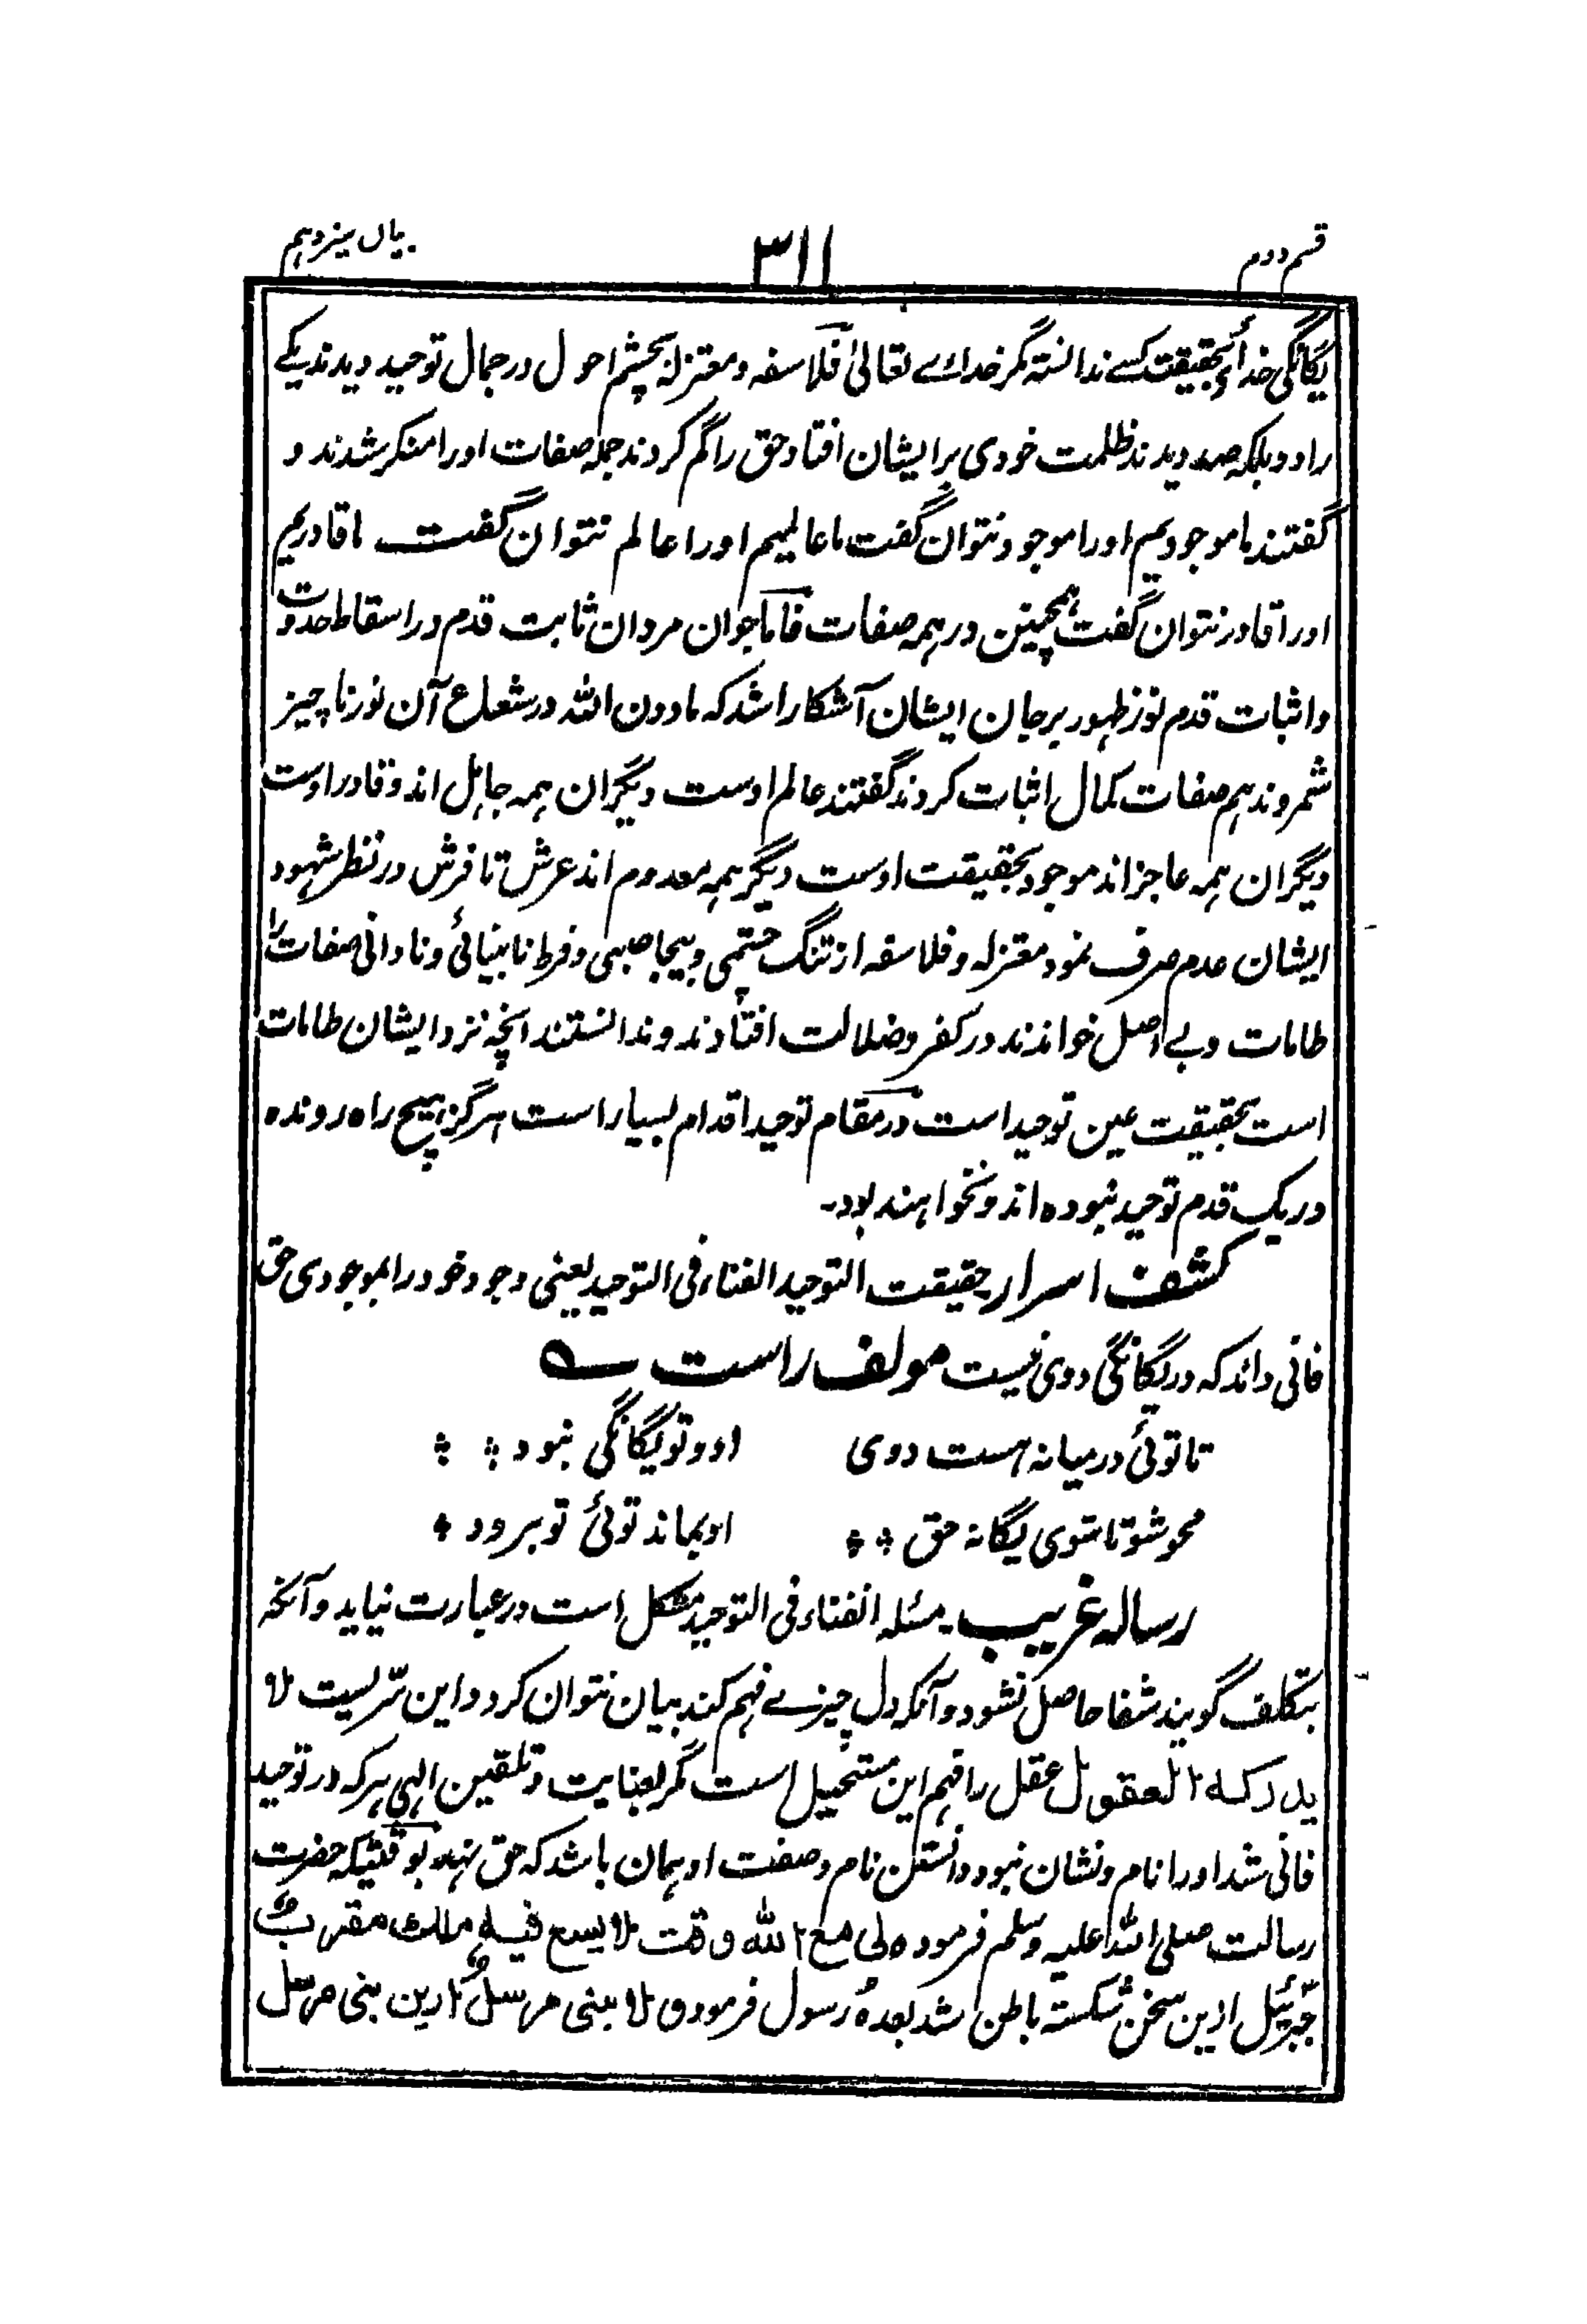 قسم دوم
۳۱۱
بیان سیزدہم
یگانگی خدائے بحقیقت کسے ندانستہ مگر خدائے تعالیٰ فلاسفہ و معتزلہ بچشم احول در جمال توحید دیدند یکے
را دو بلکہ صد دیدند ظلمت خودی بر ایشان افتاد حق را گم کردند جملہ صفات اورا منکر شدند و
گفتند ما موجودیم اورا موجود نتوان گفت ما عالمیم اورا عالم نتوان گفت ما قادریم
اورا قادر نتوان گفت ہمچنین در ہمہ صفات فاما جوان مردان ثابت قدم در اسقاط حدوث
و اثبات قدم نور ظہور بر جان ایشان آشکارا شد کہ مادون اللہ در شعاع آن نور ناچیز
شمروند ہم صفات کمال اثبات کردند گفتند عالم اوست دیگران ہمہ جاہل اند و قادر اوست
دیگران ہمہ عاجز اند موجود بحقیقت اوست دیگر ہمہ معدوم اند عرش تا فرش در نظر شہود
ایشان عدم صرف نمود معتزلہ و فلاسفہ از تنگ چشمی و بیجا صبہی و فرط نابینائی و نادانی صفات را
طامات و بے اصل خواندند در کفر و ضلالت افتادند و ندانستند انچہ نزد ایشان طامات
است بحقیقت عین توحید است در مقام توحید اقدام بسیار است ہرگز ہیچ راہ روندہ
در یک قدم توحید نبودہ اند و نخواہند بود۔
کشف اسرار حقیقت التوحید الفناء فی التوحید یعنی وجود خود را بموجودی حق
فانی داند کہ در یگانگی دوی نیست مولف راست ؎
تا توئی درمیانہ ہست دوی او و تو یگانگی نبود
محو شو تا شوی یگانہ حق او بماند توئی تو برود
رسالہ غریب۔ مسئلہ الفناء فی التوحید مشکل است در عبارت نیاید و آنکہ
بتکلف گویند شفا حاصل نشود و آنکہ دل چیزے فہم کند بیان نتوان کرد و این سریست لا
یدرکہ العقول عقل را فہم این مستحیل است مگر بعنایت و تلقین الہی ہر کہ در توحید
فانی شد اورا نام و نشان نبود دانستن نام و صفت او ہمان باشد کہ حق نہد بوقتیکہ حضرت
رسالت صلی اللہ علیہ وسلم فرمودہ لی مع اللہ وقت لا یسع فیہ ملک مقرب
جبرئیل ازین سخن شکستہ باطن شد بعدہٗ رسول فرمود و لا نبی مرسلٌ ازین نبی مرسل